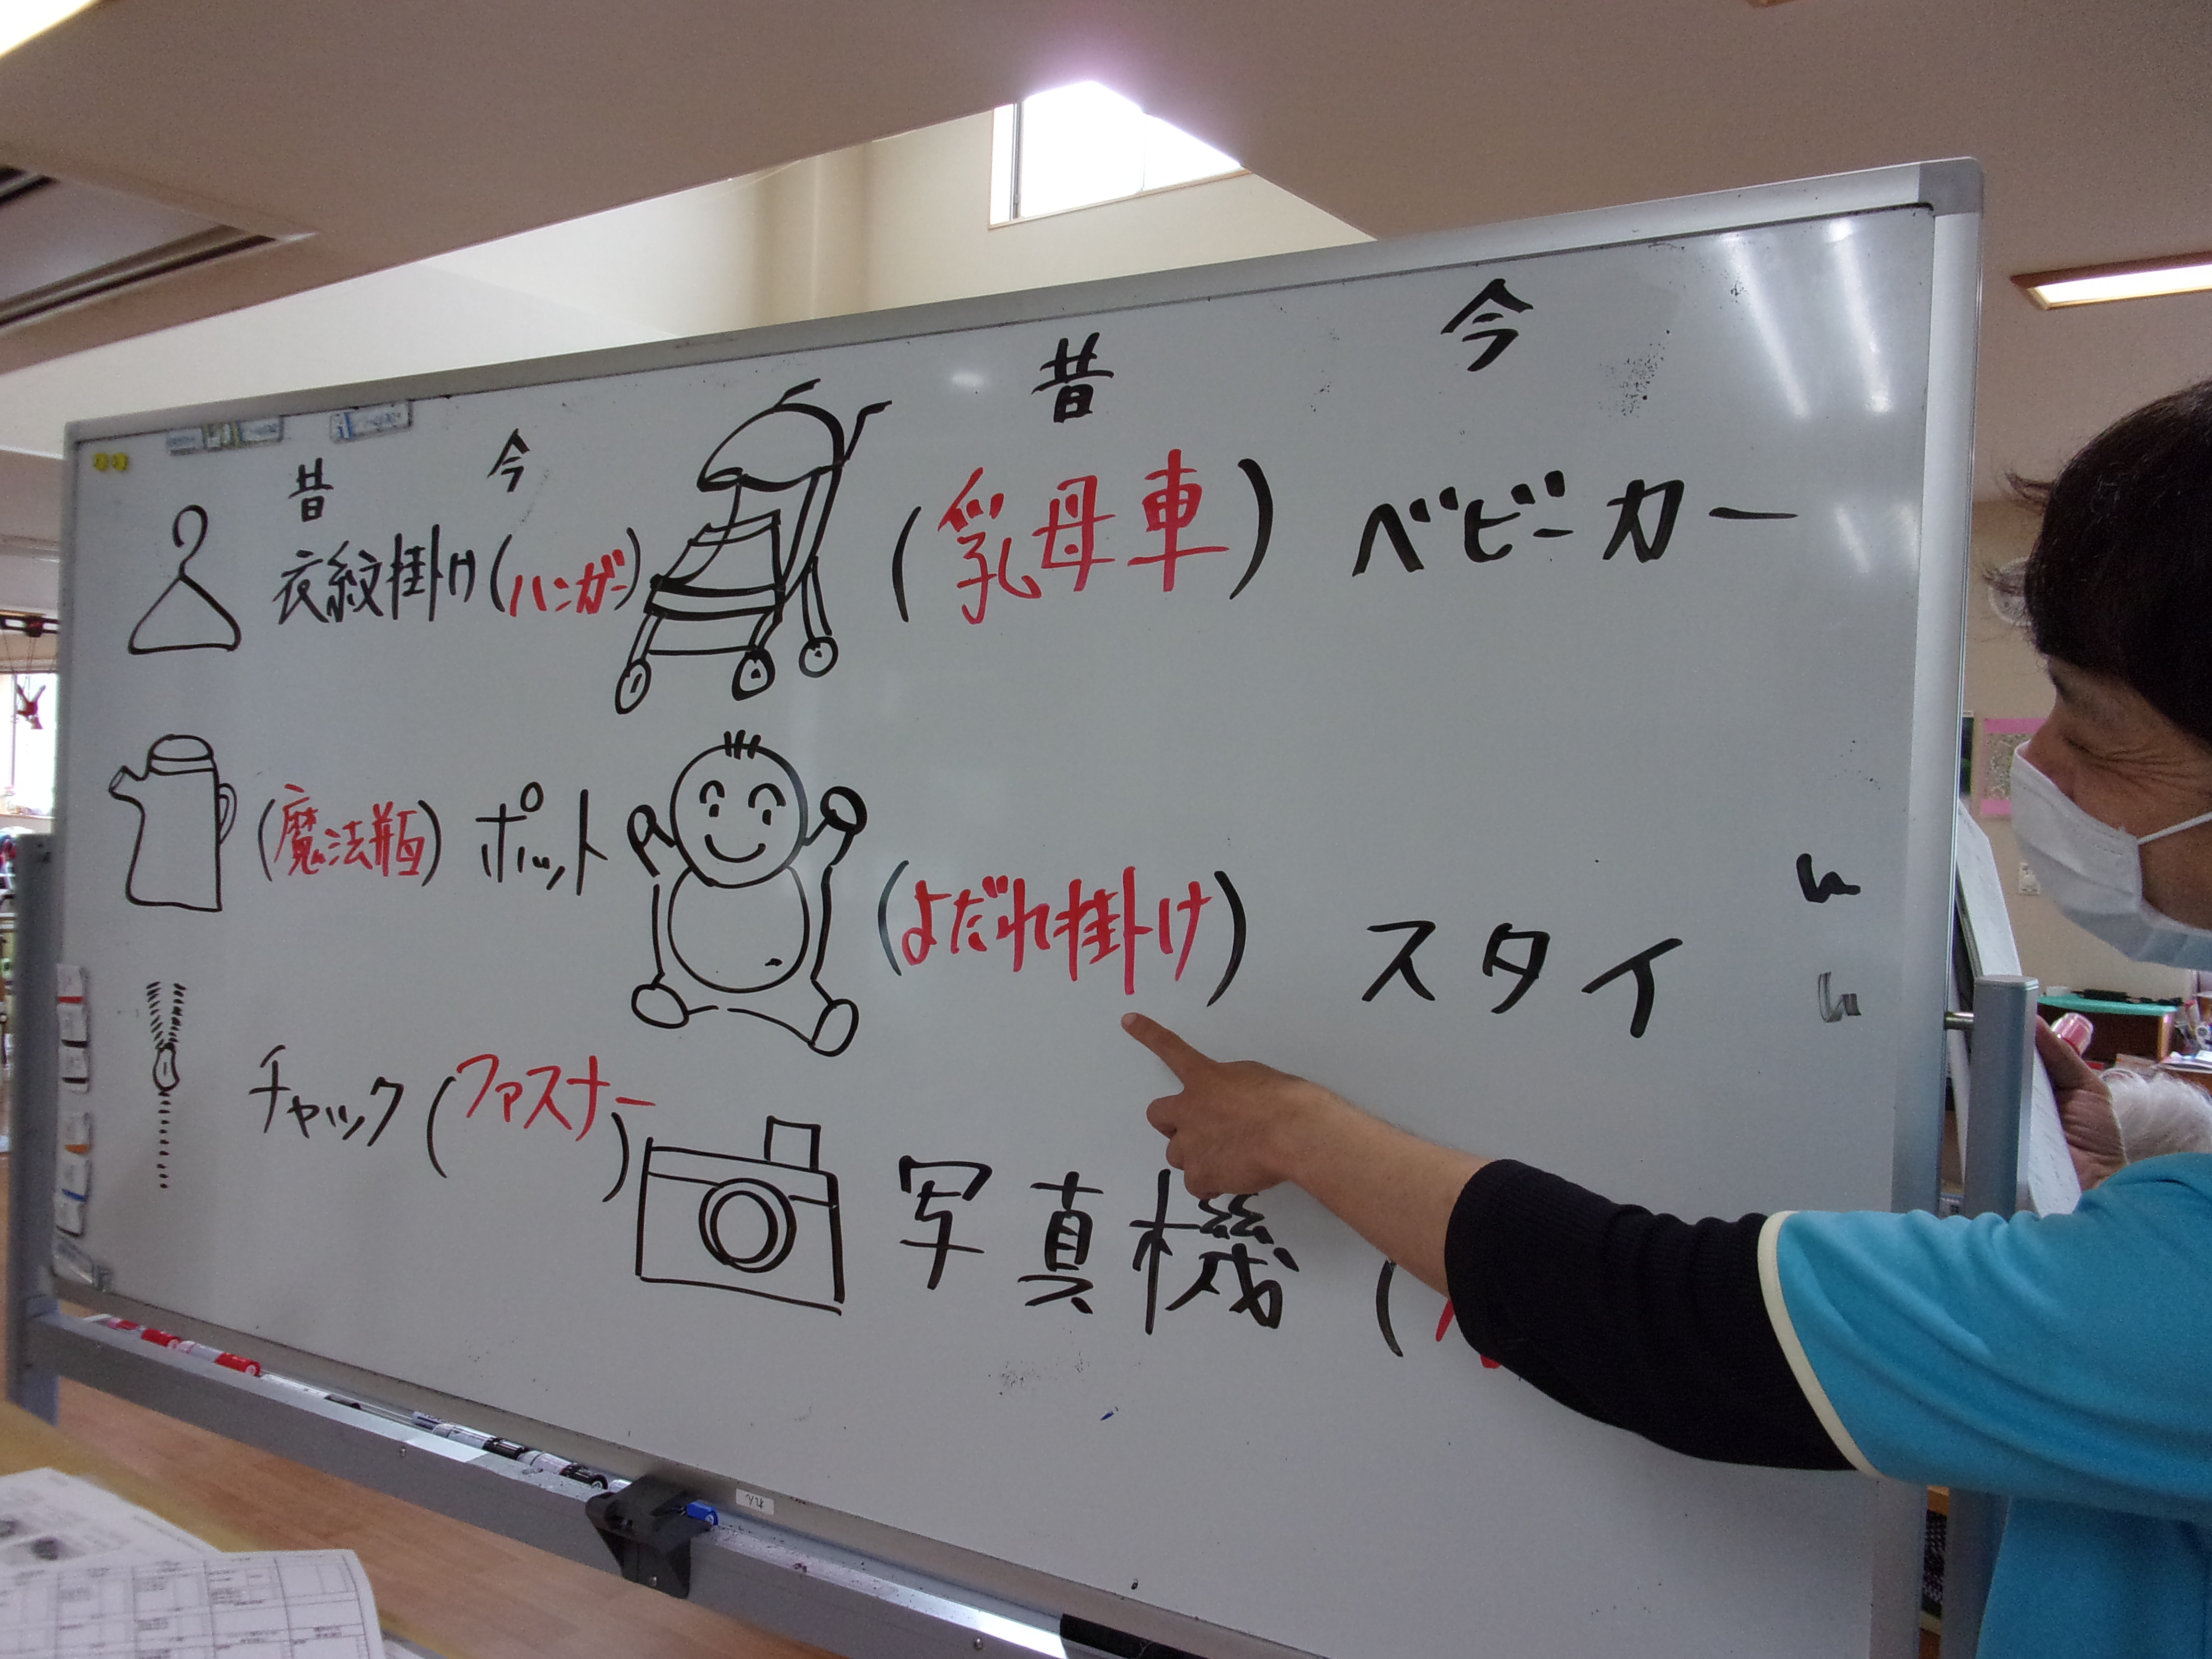 昔 今
衣紋掛け(ハンガー)
(魔法瓶) ポット
チャック(ファスナー)
昔 今
(乳母車) ベビーカー
(よだれ掛け) スタイ
写真機 (
れん